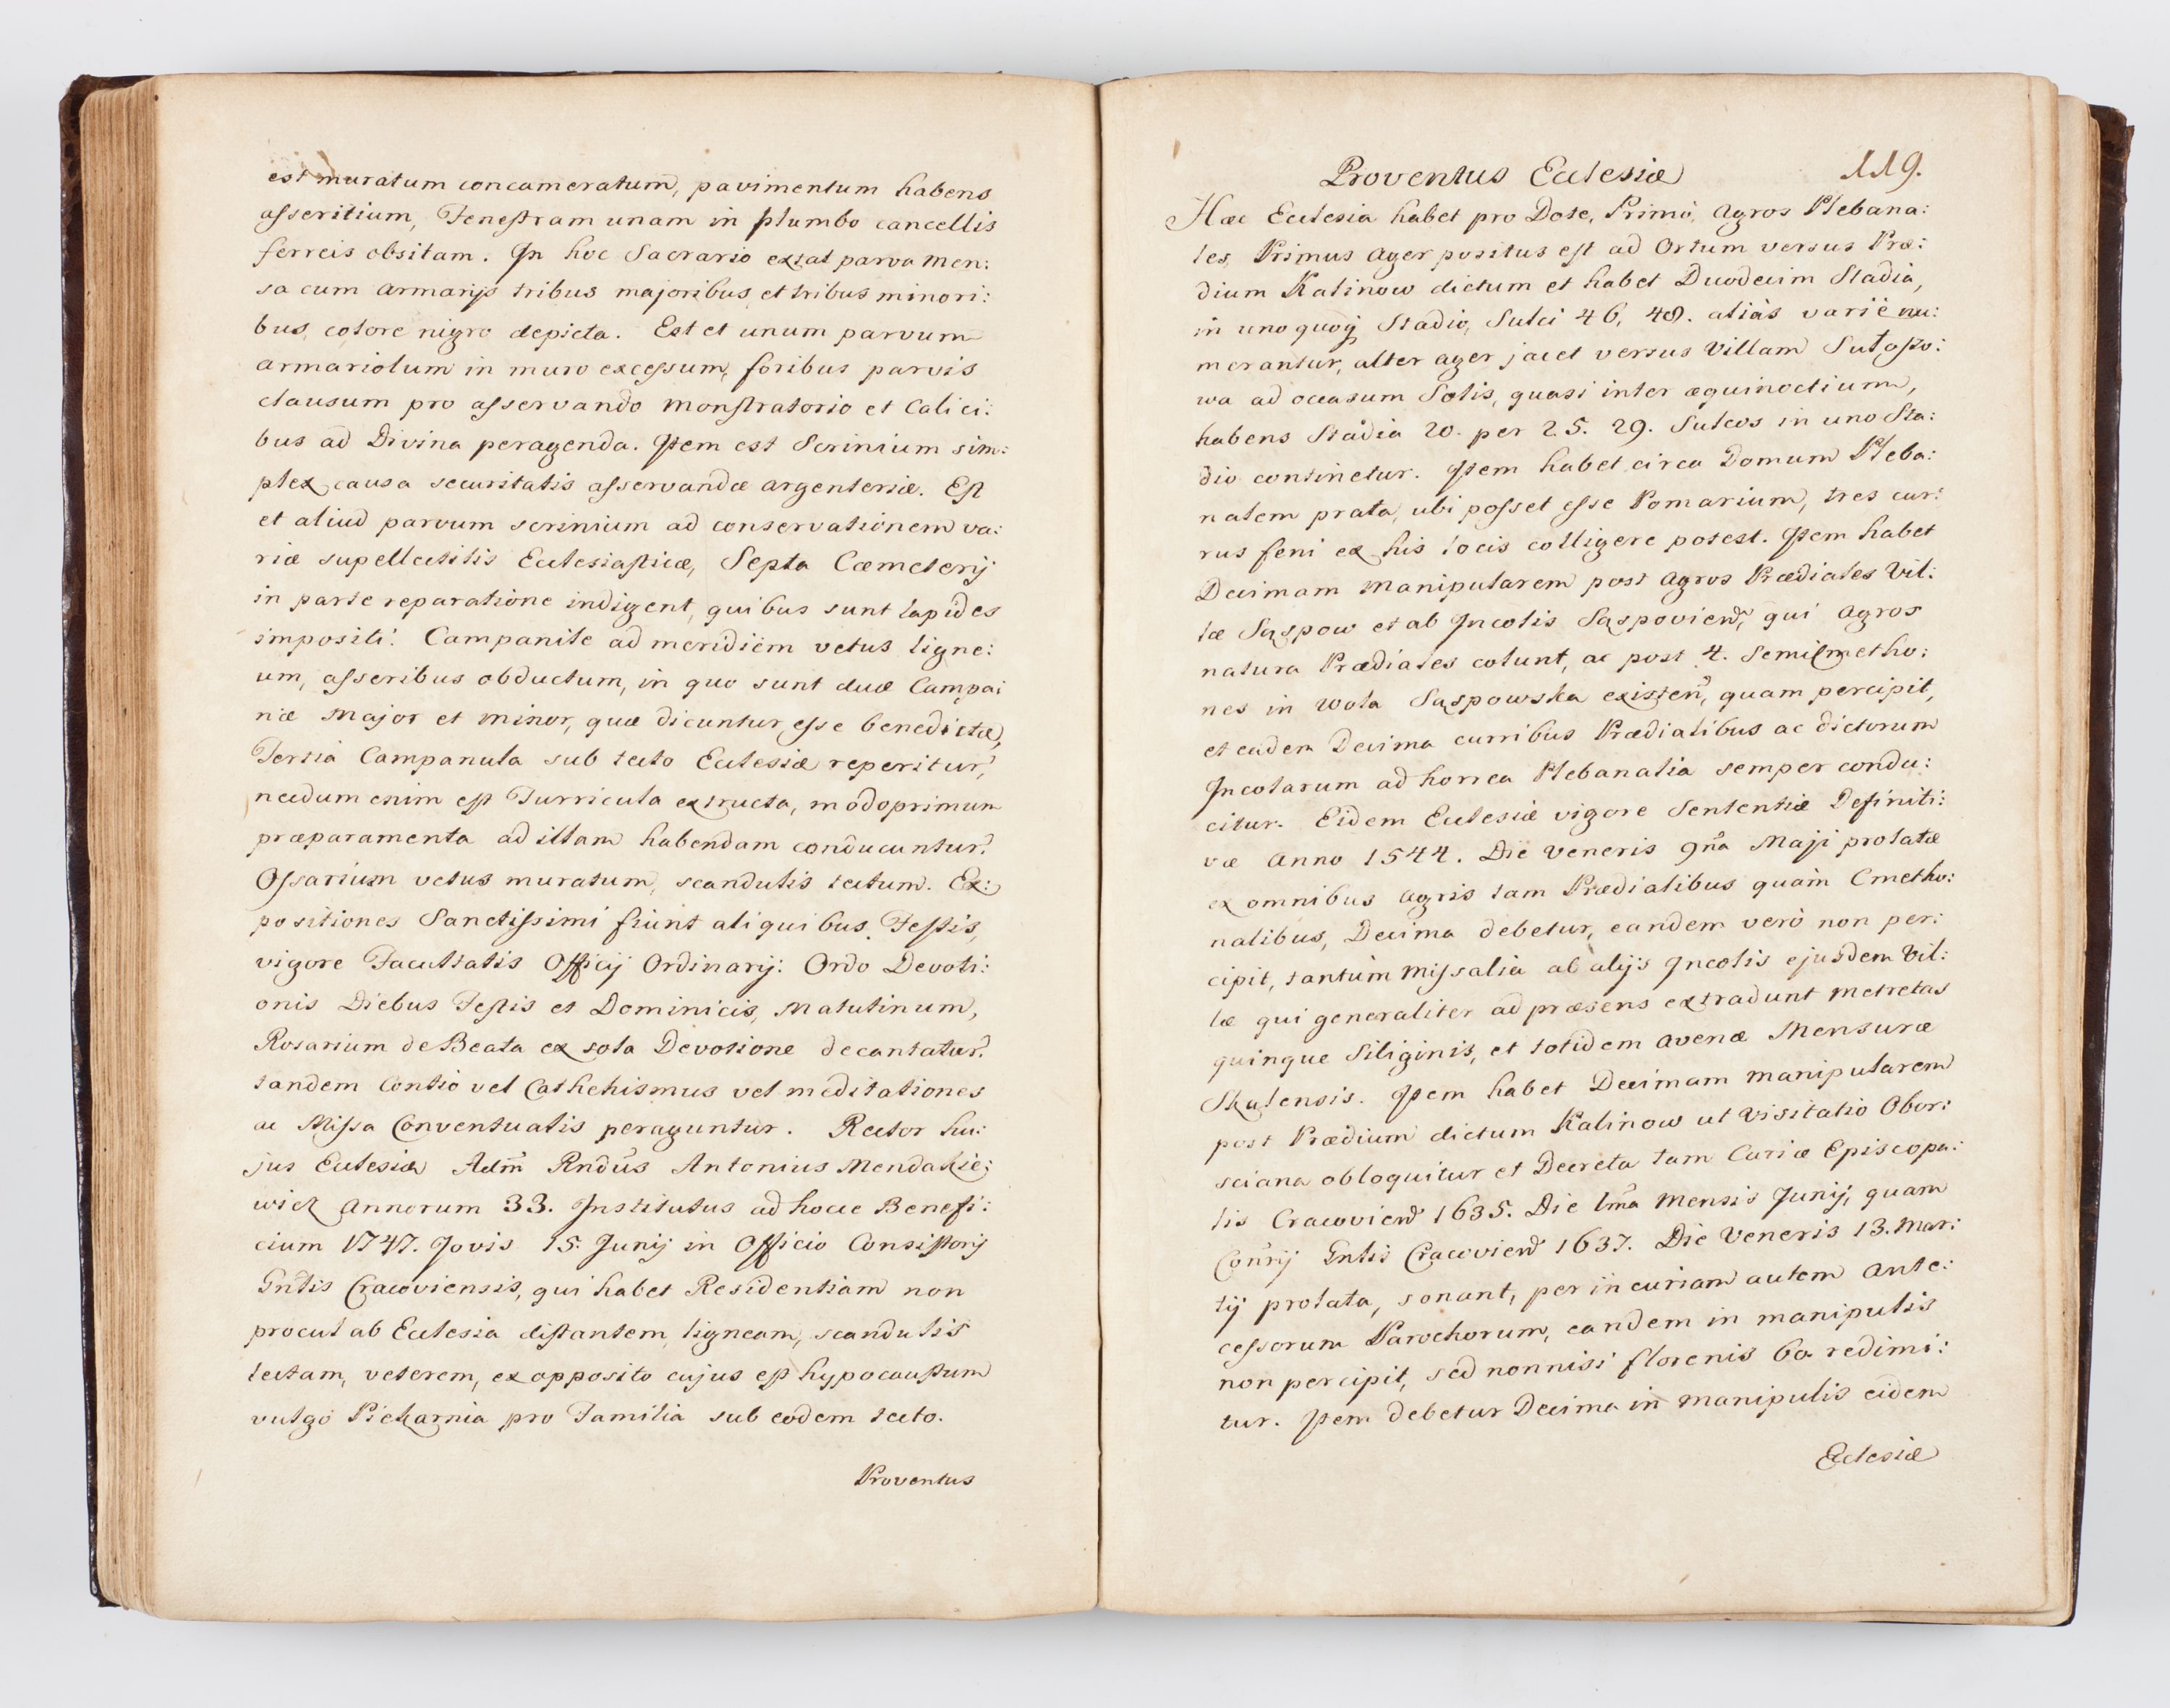 est muratum concameratum, pavimentum habens
asseritium, Fenestram unam in plumbo cancellis
ferreis obsitam. In hoc Sacrario extat parva Men:
sa cum Armarijs tribus majoribus et tribus minori:
bus, colore nigro depicta. Est et unum parvum
armariolum in muro excessum, foribus parvis
clausum pro asservando Monstratorio et Calici:
bus ad Divina peragenda. Item est Scrinium sim:
plex causa securitatis asservandæ argenteriæ. Est
et aliud parvum scrinium ad conservationem va:
riæ supellectilis Ecclesiasticæ, Septa Cæmeterij
in parte reparatione indigent, quibus sunt lapides
impositi. Campanile ad meridiem vetus ligne:
um, asseribus obductum, in quo sunt duæ Campa:
næ Major et minor, quæ dicuntur esse benedictæ,
Tertia Campanula sub tecto Ecclesiæ reperitur,
necdum enim est Turricula extructa, modo primum
præparamenta ad illam habendam conducuntur.
Ossarium vetus muratum, scandulis tectum. Ex:
positiones Sanctissimi fiunt aliquibus Festis,
vigore Facultatis Officij Ordinarij: Ordo Devoti:
onis Diebus Festis et Dominicis, Matutinum,
Rosarium de Beata ex sola Devotione decantatur.
tandem Contio vel Cathehismus vel meditationes
ac Missa Conventualis peraguntur. Rector hu:
jus Ecclesiæ Adm̃ Rndus Antonius Mendakie:
wicz Annorum 33. Institutus ad hocce Benefi:
cium 1747. Jovis 15. Junij in Officio Consistorij
Gntis Cracoviensis, qui habet Residentiam non
procul ab Ecclesia distantem, ligneam, scandulis
tectam, veterem, ex opposito cujus est hypocaustum
vulgo Piekarnia pro Familia sub eodem tecto.
Proventus
Proventus Ecclesiæ 119.
Hæc Ecclesia habet pro Dote, Primo, Agros Plebana:
les, Primus Ager positus est ad Ortum versus Præ:
dium Kalinow dictum et habet Duodecim Stadia,
in unoquoq Stadio, Sulci 46, 48. aliàs variè nu:
merantur, alter ager jacet versus Villam Sułoszo:
wa ad occasum Solis, quasi inter æquinoctium,
habens Stadia 20. per 25. 29. Sulcos in uno Sta:
dio continetur. Item habet circa Domum Pleba:
nalem prata, ubi posset esse Pomarium, tres cur:
rus feni ex his locis colligere potest. Item habet
Decimam manipularem post Agros Prædiales Vil:
læ Sąspow et ab Incolis Sąspovien, qui Agros
natura Prædiales colunt, ac post 4. Semicmetho:
nes in Wola Sąspowska existen, quam percipit,
et eadem Decima curribus Prædialibus ac dictorum
Incolarum ad horrea Plebanalia semper condu:
citur. Eidem Ecclesiæ vigore Sententiæ Definiti:
væ Anno 1544. Die Veneris 9na Maji prolatæ
ex omnibus Agris tam Prædialibus quàm Cmetho:
nalibus, Decima debetur, eandem verò non per:
cipit, tantùm Missalia ab alijs Incolis ejusdem Vil:
læ qui generaliter ad præsens extradunt metretas
quinque Siliginis, et totidem avenæ Mensuræ
Skalensis. Item habet Decimam manipularem
post Prædium dictum Kalinow ut Visitatio Obor:
sciana obloquitur et Decreta tam Curiæ Episcopa:
lis Cracovien 1635. Die 1ma Mensis Junij, quam
Conrij Gntis Cracovien 1637. Die Veneris 13. Mar:
tij prolata, sonant, per incuriam autem Ante:
cessorum Parochorum, eandem in manipulis
non percipit, sed nonnisi florenis 60 redimi:
tur. Item debetur Decima in manipulis eidem
Ecclesiæ